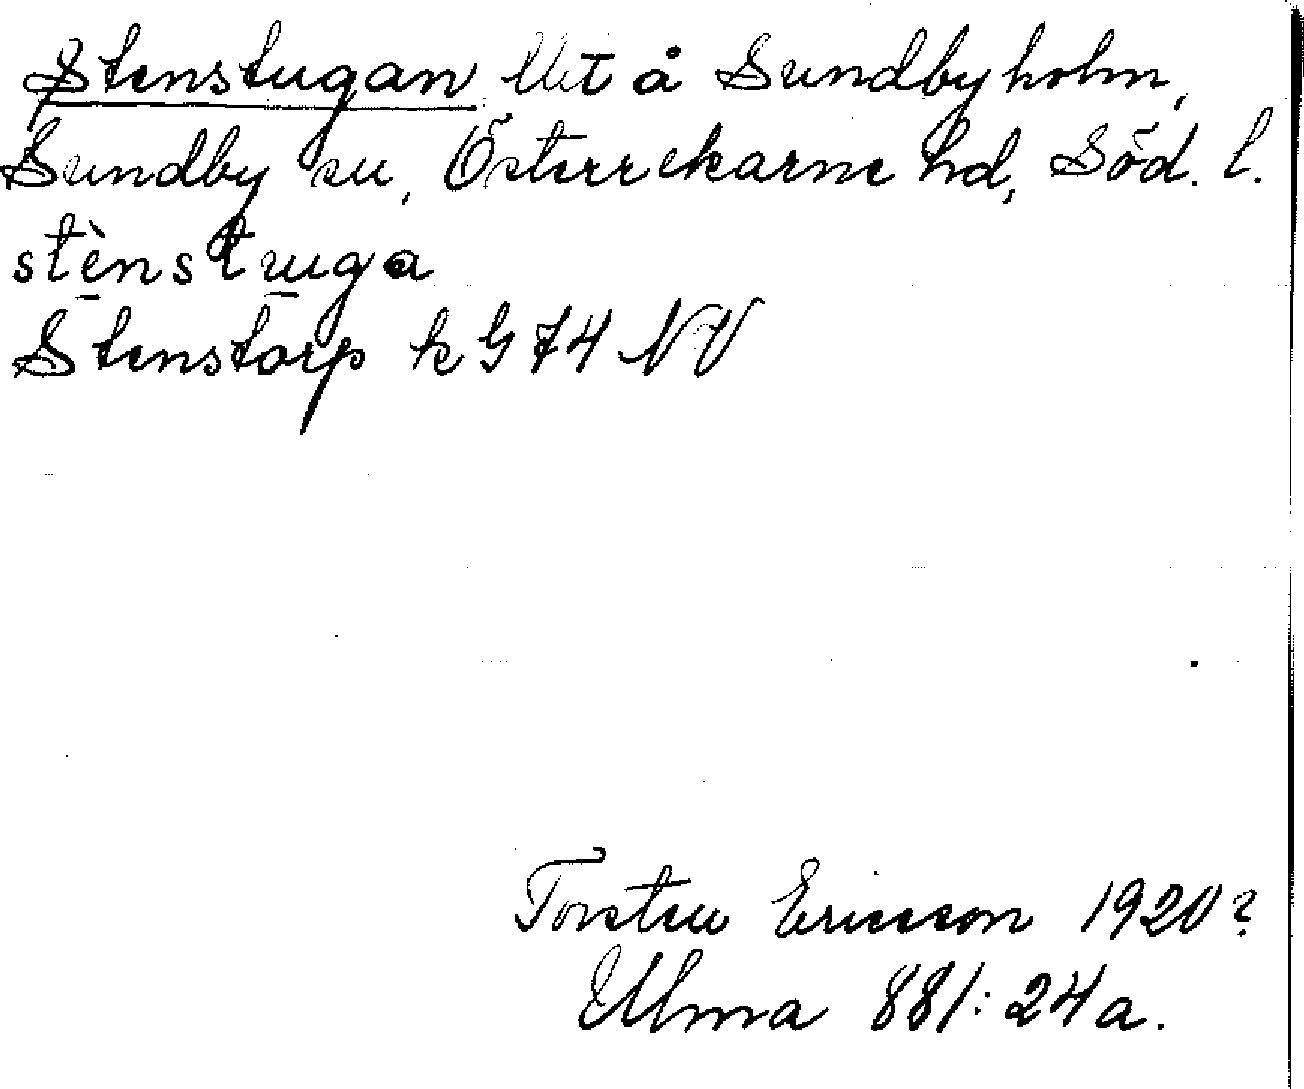 Stenstugan Ut å Sundbyholm,
Sundby sn, Österrekarne hd, Söd. l.
stènstuga
Stenstorp k G 74 NV
Torsten Ericsson 1920?
Ulma 881:24a.